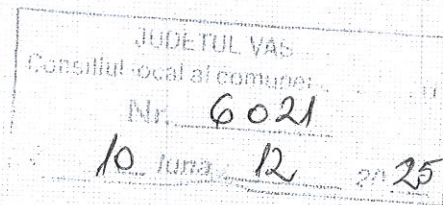 JUDEȚUL VAS
Consiliul local al comunei
Nr. 6021
10 luna 12 20 25